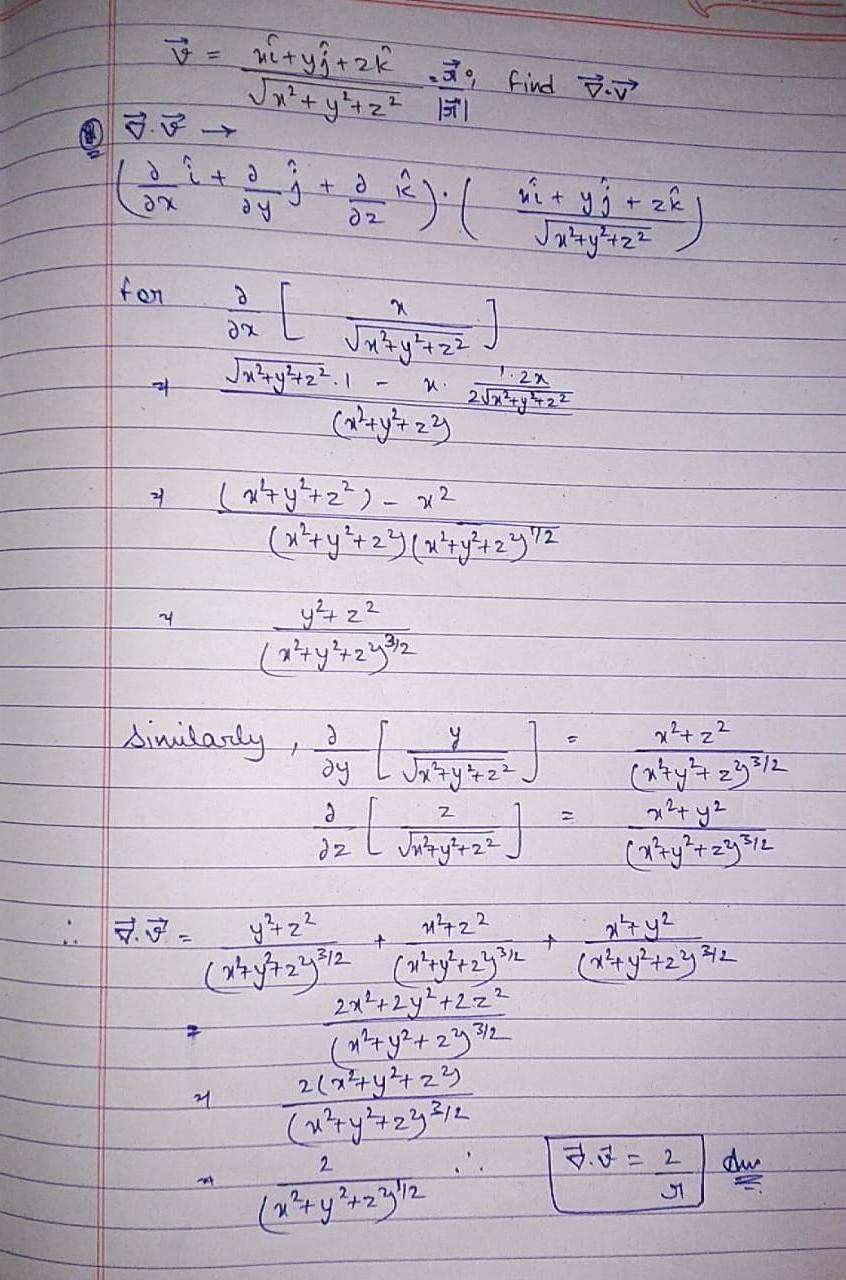 v⃗ = (xî + yĵ + zk̂)/√(x²+y²+z²) = r⃗/|r⃗| ; find ∇⃗.v⃗
∇⃗.v⃗ →
(∂/∂x î + ∂/∂y ĵ + ∂/∂z k̂) . ((xî + yĵ + zk̂)/√(x²+y²+z²))
for ∂/∂x [x/√(x²+y²+z²)]
⇒ (√(x²+y²+z²).1 - x. 1.2x/(2√(x²+y²+z²)))/(x²+y²+z²)
⇒ ((x²+y²+z²) - x²)/((x²+y²+z²)(x²+y²+z²)^1/2)
⇒ (y²+z²)/(x²+y²+z²)^3/2
Similarly, ∂/∂y [y/√(x²+y²+z²)] = (x²+z²)/(x²+y²+z²)^3/2
∂/∂z [z/√(x²+y²+z²)] = (x²+y²)/(x²+y²+z²)^3/2
∴ ∇⃗.v⃗ = (y²+z²)/(x²+y²+z²)^3/2 + (x²+z²)/(x²+y²+z²)^3/2 + (x²+y²)/(x²+y²+z²)^3/2
⇒ (2x²+2y²+2z²)/(x²+y²+z²)^3/2
⇒ 2(x²+y²+z²)/(x²+y²+z²)^3/2
⇒ 2/(x²+y²+z²)^1/2 ∴ ∇⃗.v⃗ = 2/r Ans